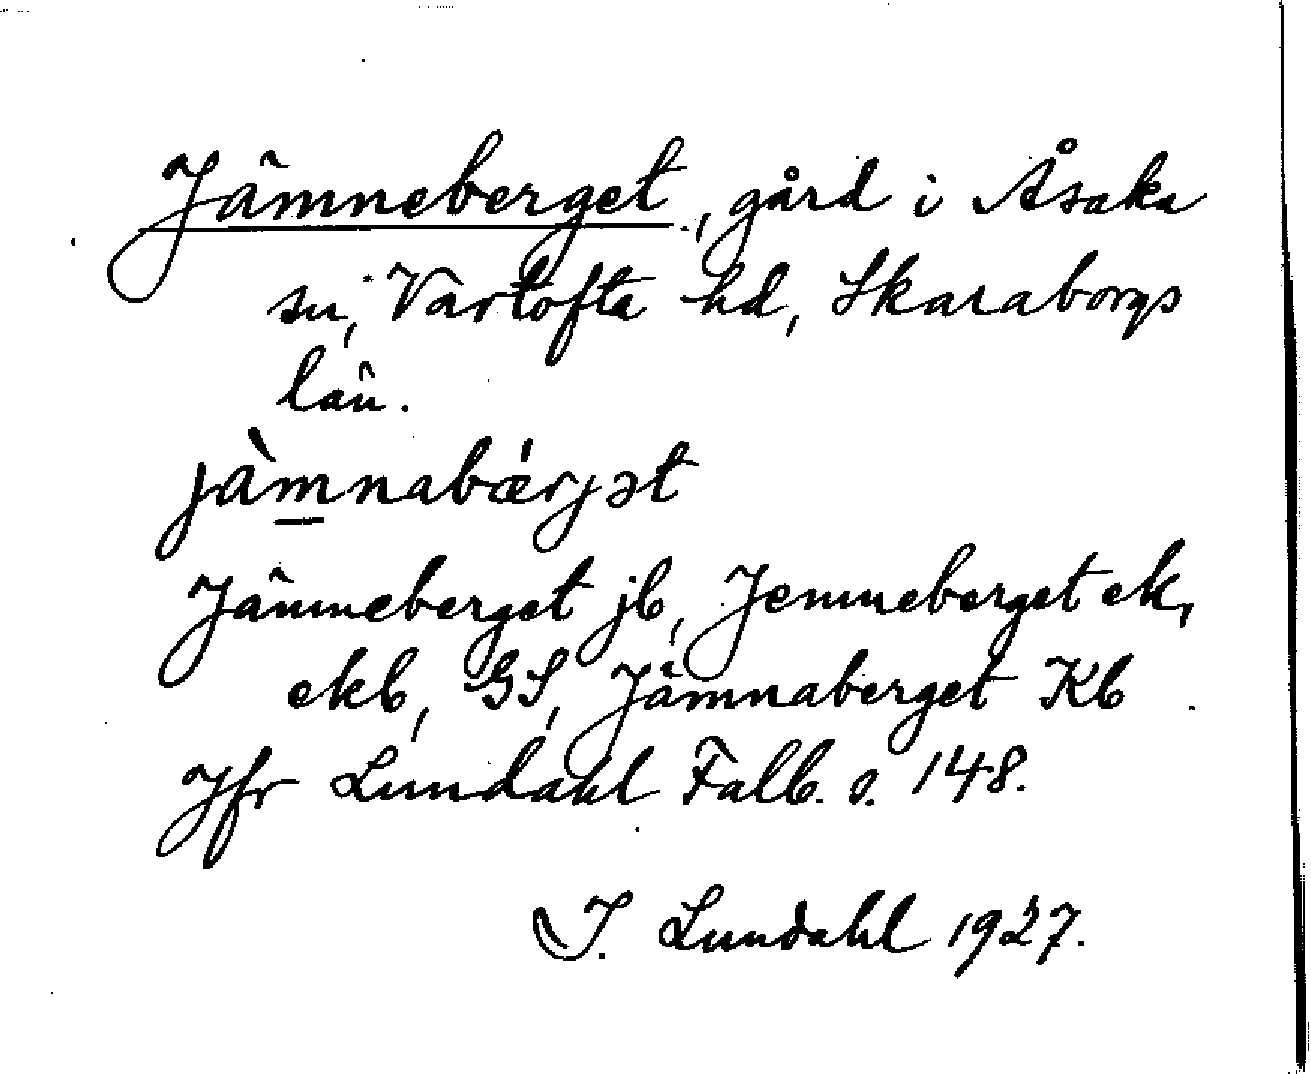 Jämneberget, gård i Åsaka
sn, Vartofta hd, Skaraborgs
län.
jàmnabǽrjət
Jämneberget jb, Jemneberget ek,
ekb, GS, Jämnaberget Kb
Jfr Lundahl Falb. s. 148.
I. Lundahl 1927.